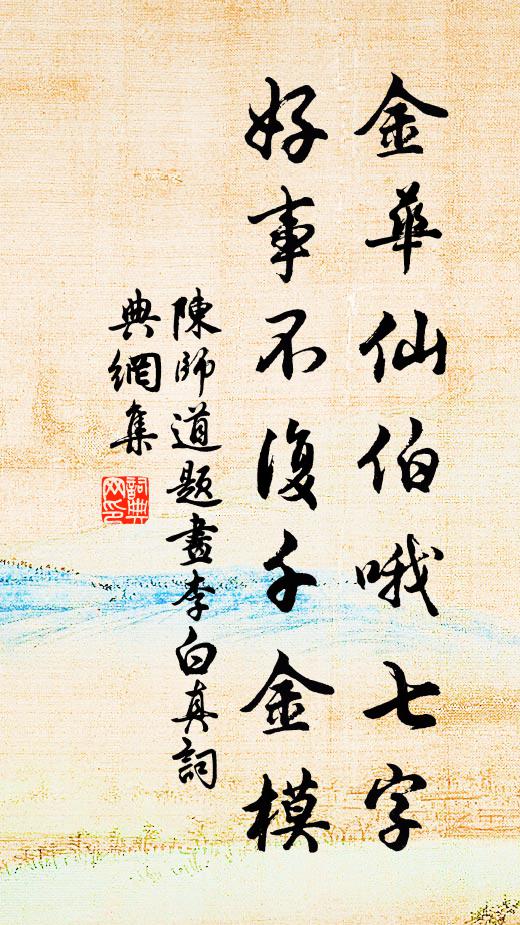 金華仙伯哦七字
好事不復千金模
陳師道題畫李白真詞
典網集
詞典網印